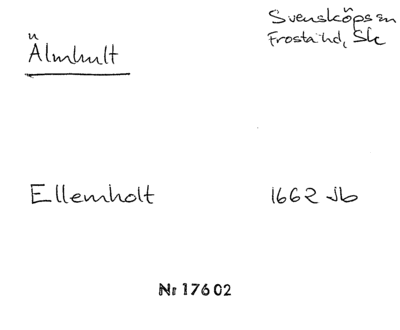 Svensköps sn
Frosta hd, Sk
Älmhult
Ellemholt 1662 Jb
Nr 17602